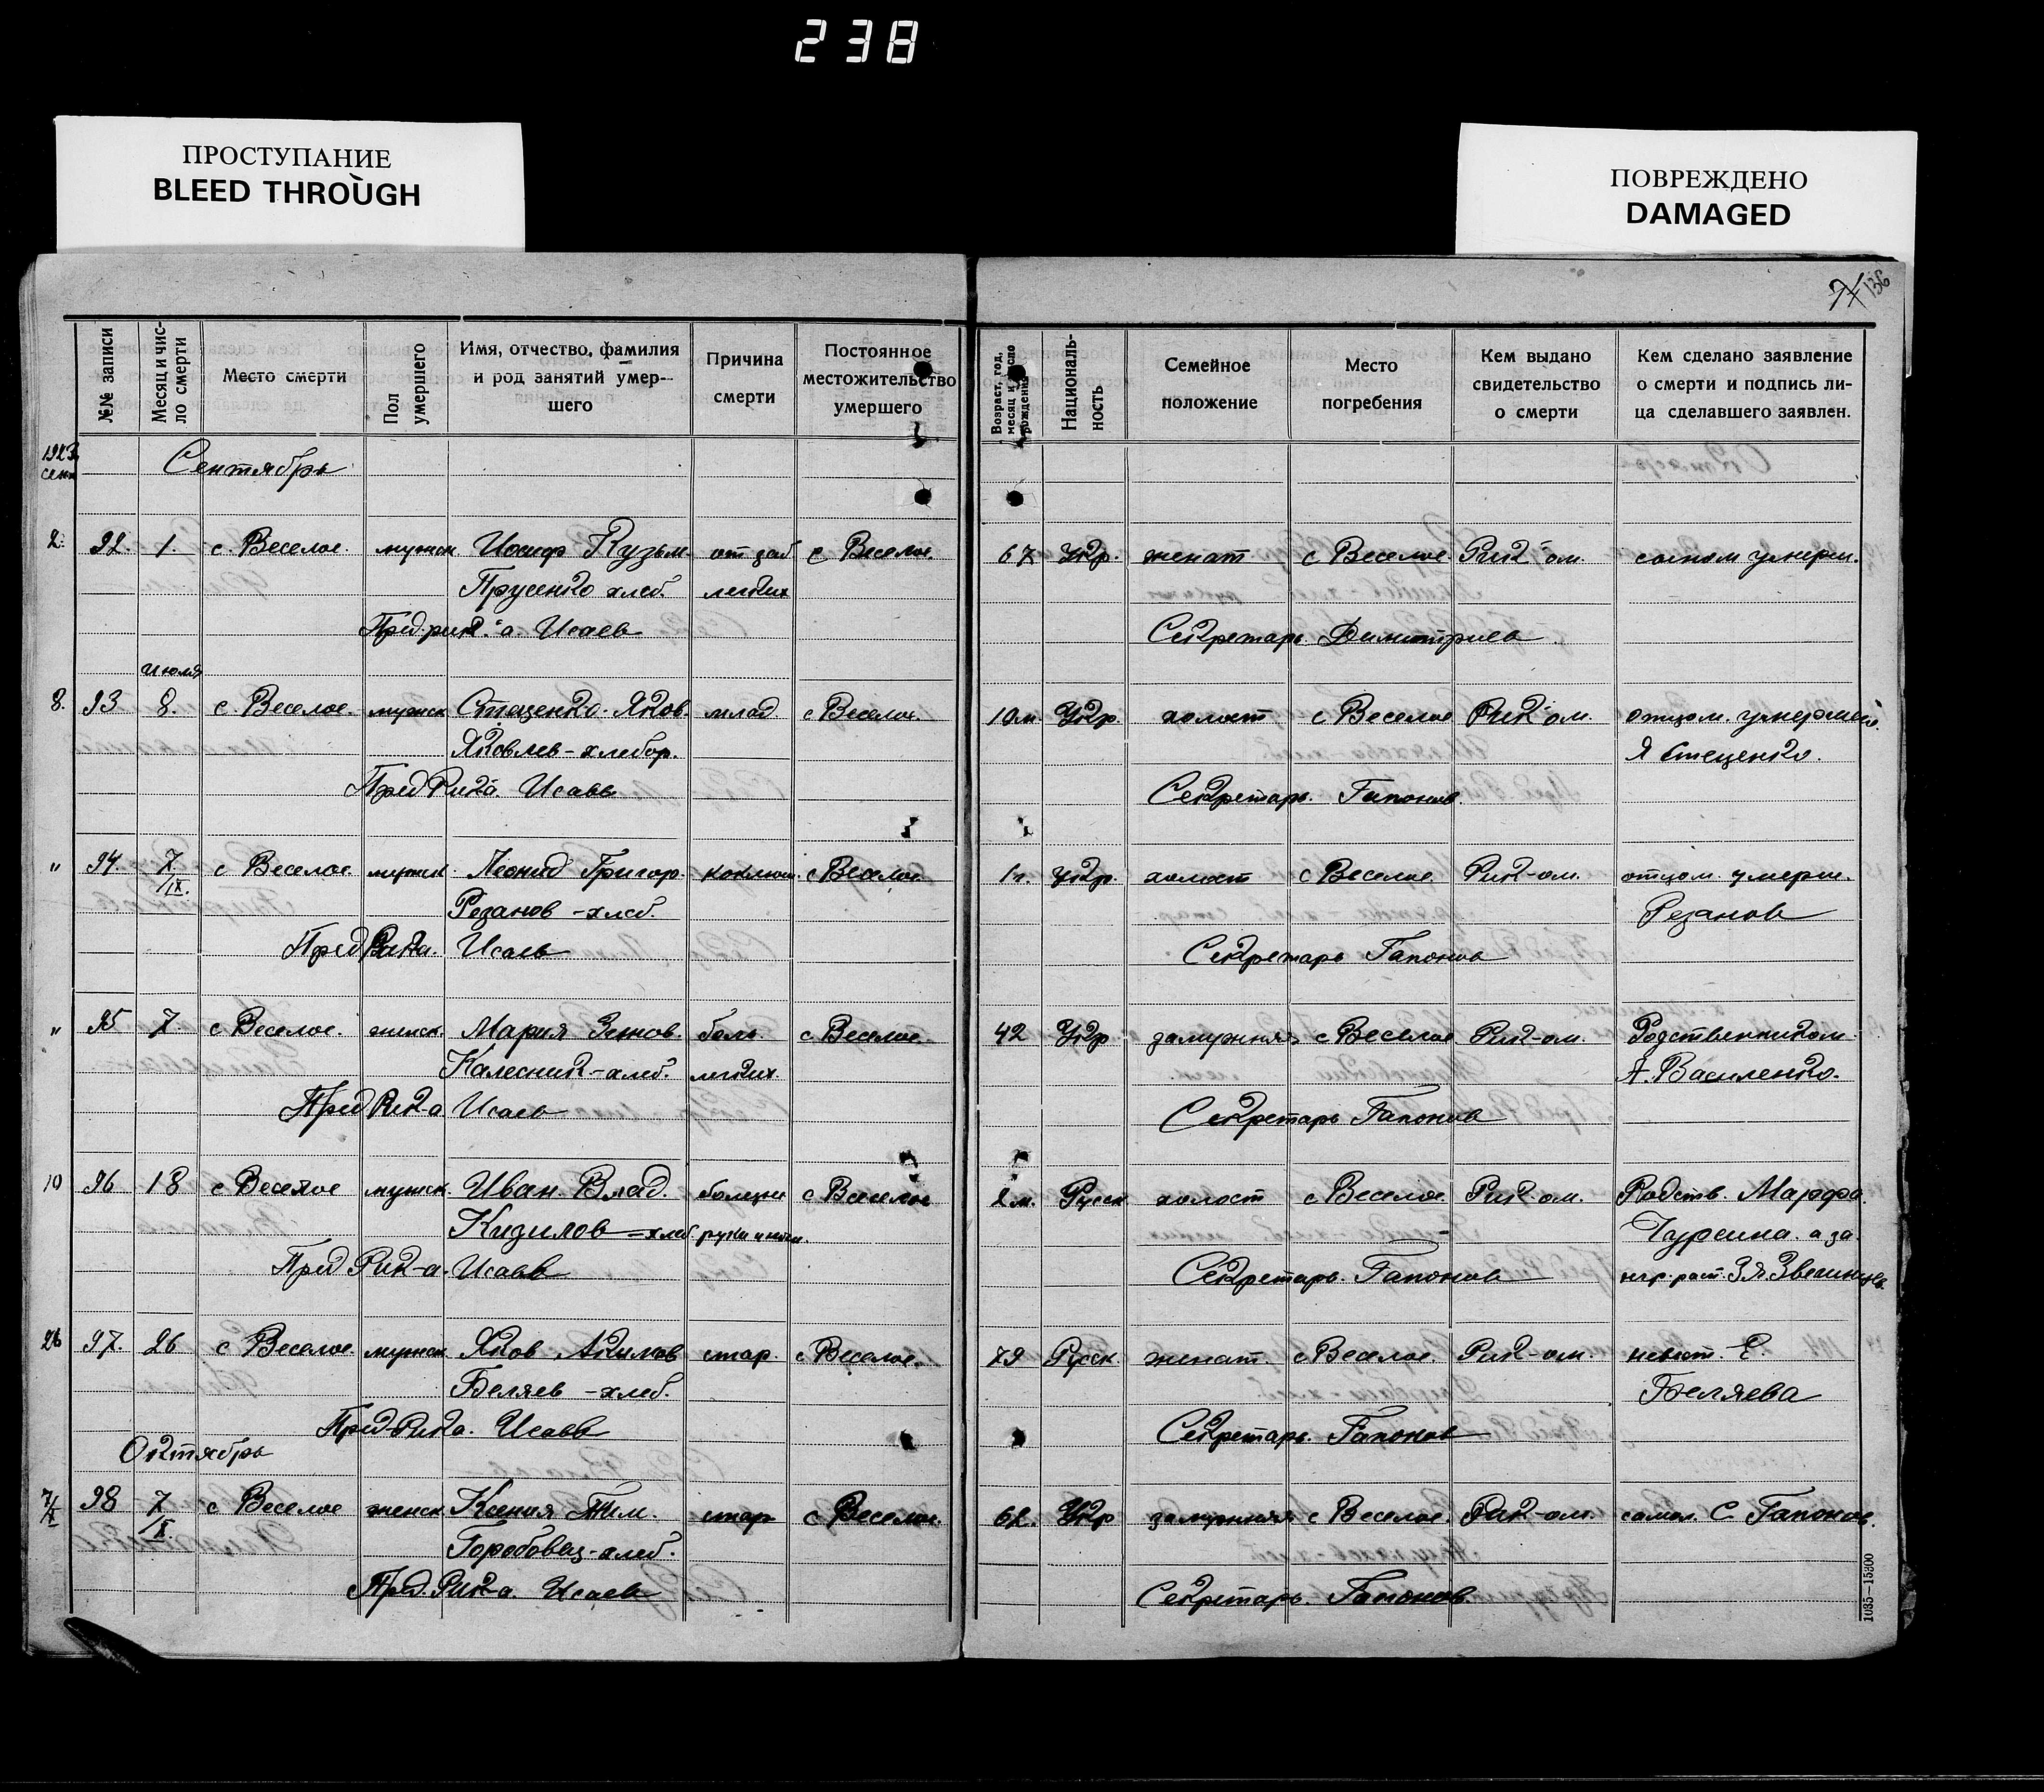 238
ПРОСТУПАНИЕ
BLEED THROUGH
ПОВРЕЖДЕНО
DAMAGED
136
№№ записи
Месяц и чис-
ло смерти
Место смерти
Пол
умершего
Имя, отчество, фамилия
и род занятий умер-
шего
Причина
смерти
Постоянное
местожительство
умершего
Возраст, год,
месяц и число
рождения
Националь-
ность
Семейное
положение
Место
погребения
Кем выдано
свидетельство
о смерти
Кем сделано заявление
о смерти и подпись ли-
ца сделавшего заявлен.
1923
сент
Сентябрь
2. 92. 1. с. Веселое. мужск Иосиф Кузьм. от заб с Веселое. 67 Укр. женат с Веселое Рик-ом. сыном умерш.
Прусенко хлеб. легких
Пред. рик-а. Исаев Секретарь Димитриев
июля
8. 93 8. с. Веселое. мужск Стеценко Яков млад. с Веселое. 10 м. Укр. холост с Веселое Рик-ом. отцом. умершего.
Яковлев-хлебор. Я Стеценко.
Пред Рика. Исаев Секретарь. Гапонов.
" 94. 7/IX. с Веселое мужск. Леонид Григор. коклюш. с Веселое 1 г. Укр. холост с Веселое. Рик-ом. отцом. умерш.
Резанов-хлеб. Резанов
Пред Рика. Исаев Секретарь Гапонов
" 95 7. с Веселое. женск. Мария Зенов. боль. с Веселое. 42 Укр замужняя с Веселое Рик-ом. Родственником
Калесник-хлеб. легких. А. Василенко.
Пред Рик-а Исаев Секретарь Гапонов
10 96 18 с Веселое мужск. Иван. Влад. болезни с Веселое 2 м. Русск. холост с Веселое. Рик-ом. Родств. Марфа
Кизилов-хлеб руки и ноги. Чурсина. а за
Пред Рик-а. Исаев Секретарь. Гапонов негр. расп. Звегинцев
26 97. 26 с Веселое. мужск Яков Акимов стар. с Веселое. 79 Русск женат. с Веселое. Рик-ом. невест. Е.
Беляев-хлеб. Беляева
Пред Рика. Исаев Секретарь. Гапонов
Октябрь
7/X 98 7/X. с Веселое женск Ксения Тим. стар с Веселое. 62. Укр замужняя с Веселое. Рик-ом. С Гапонов.
Горобовец-хлеб.
Пред. Рик-а. Исаев Секретарь. Гапонов
1035—15300